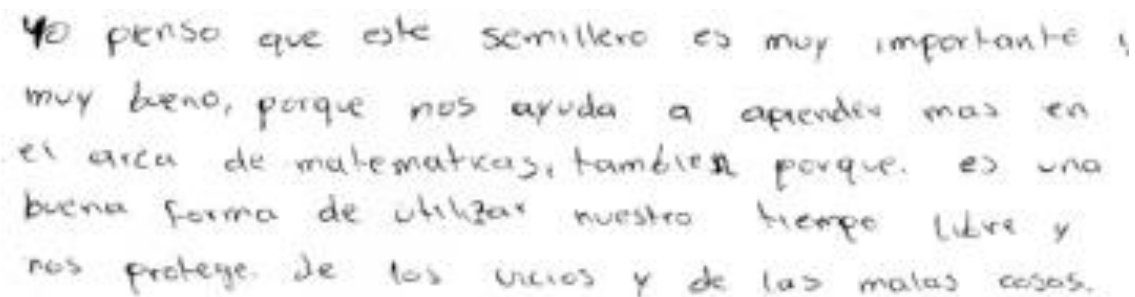 Yo pienso que este semillero es muy importante y
muy bueno, porque nos ayuda a aprender mas en
el area de matematicas, tambien porque. es una
buena forma de utilizar nuestro tiempo libre y
nos protege. de los vicios y de las malas cosas.